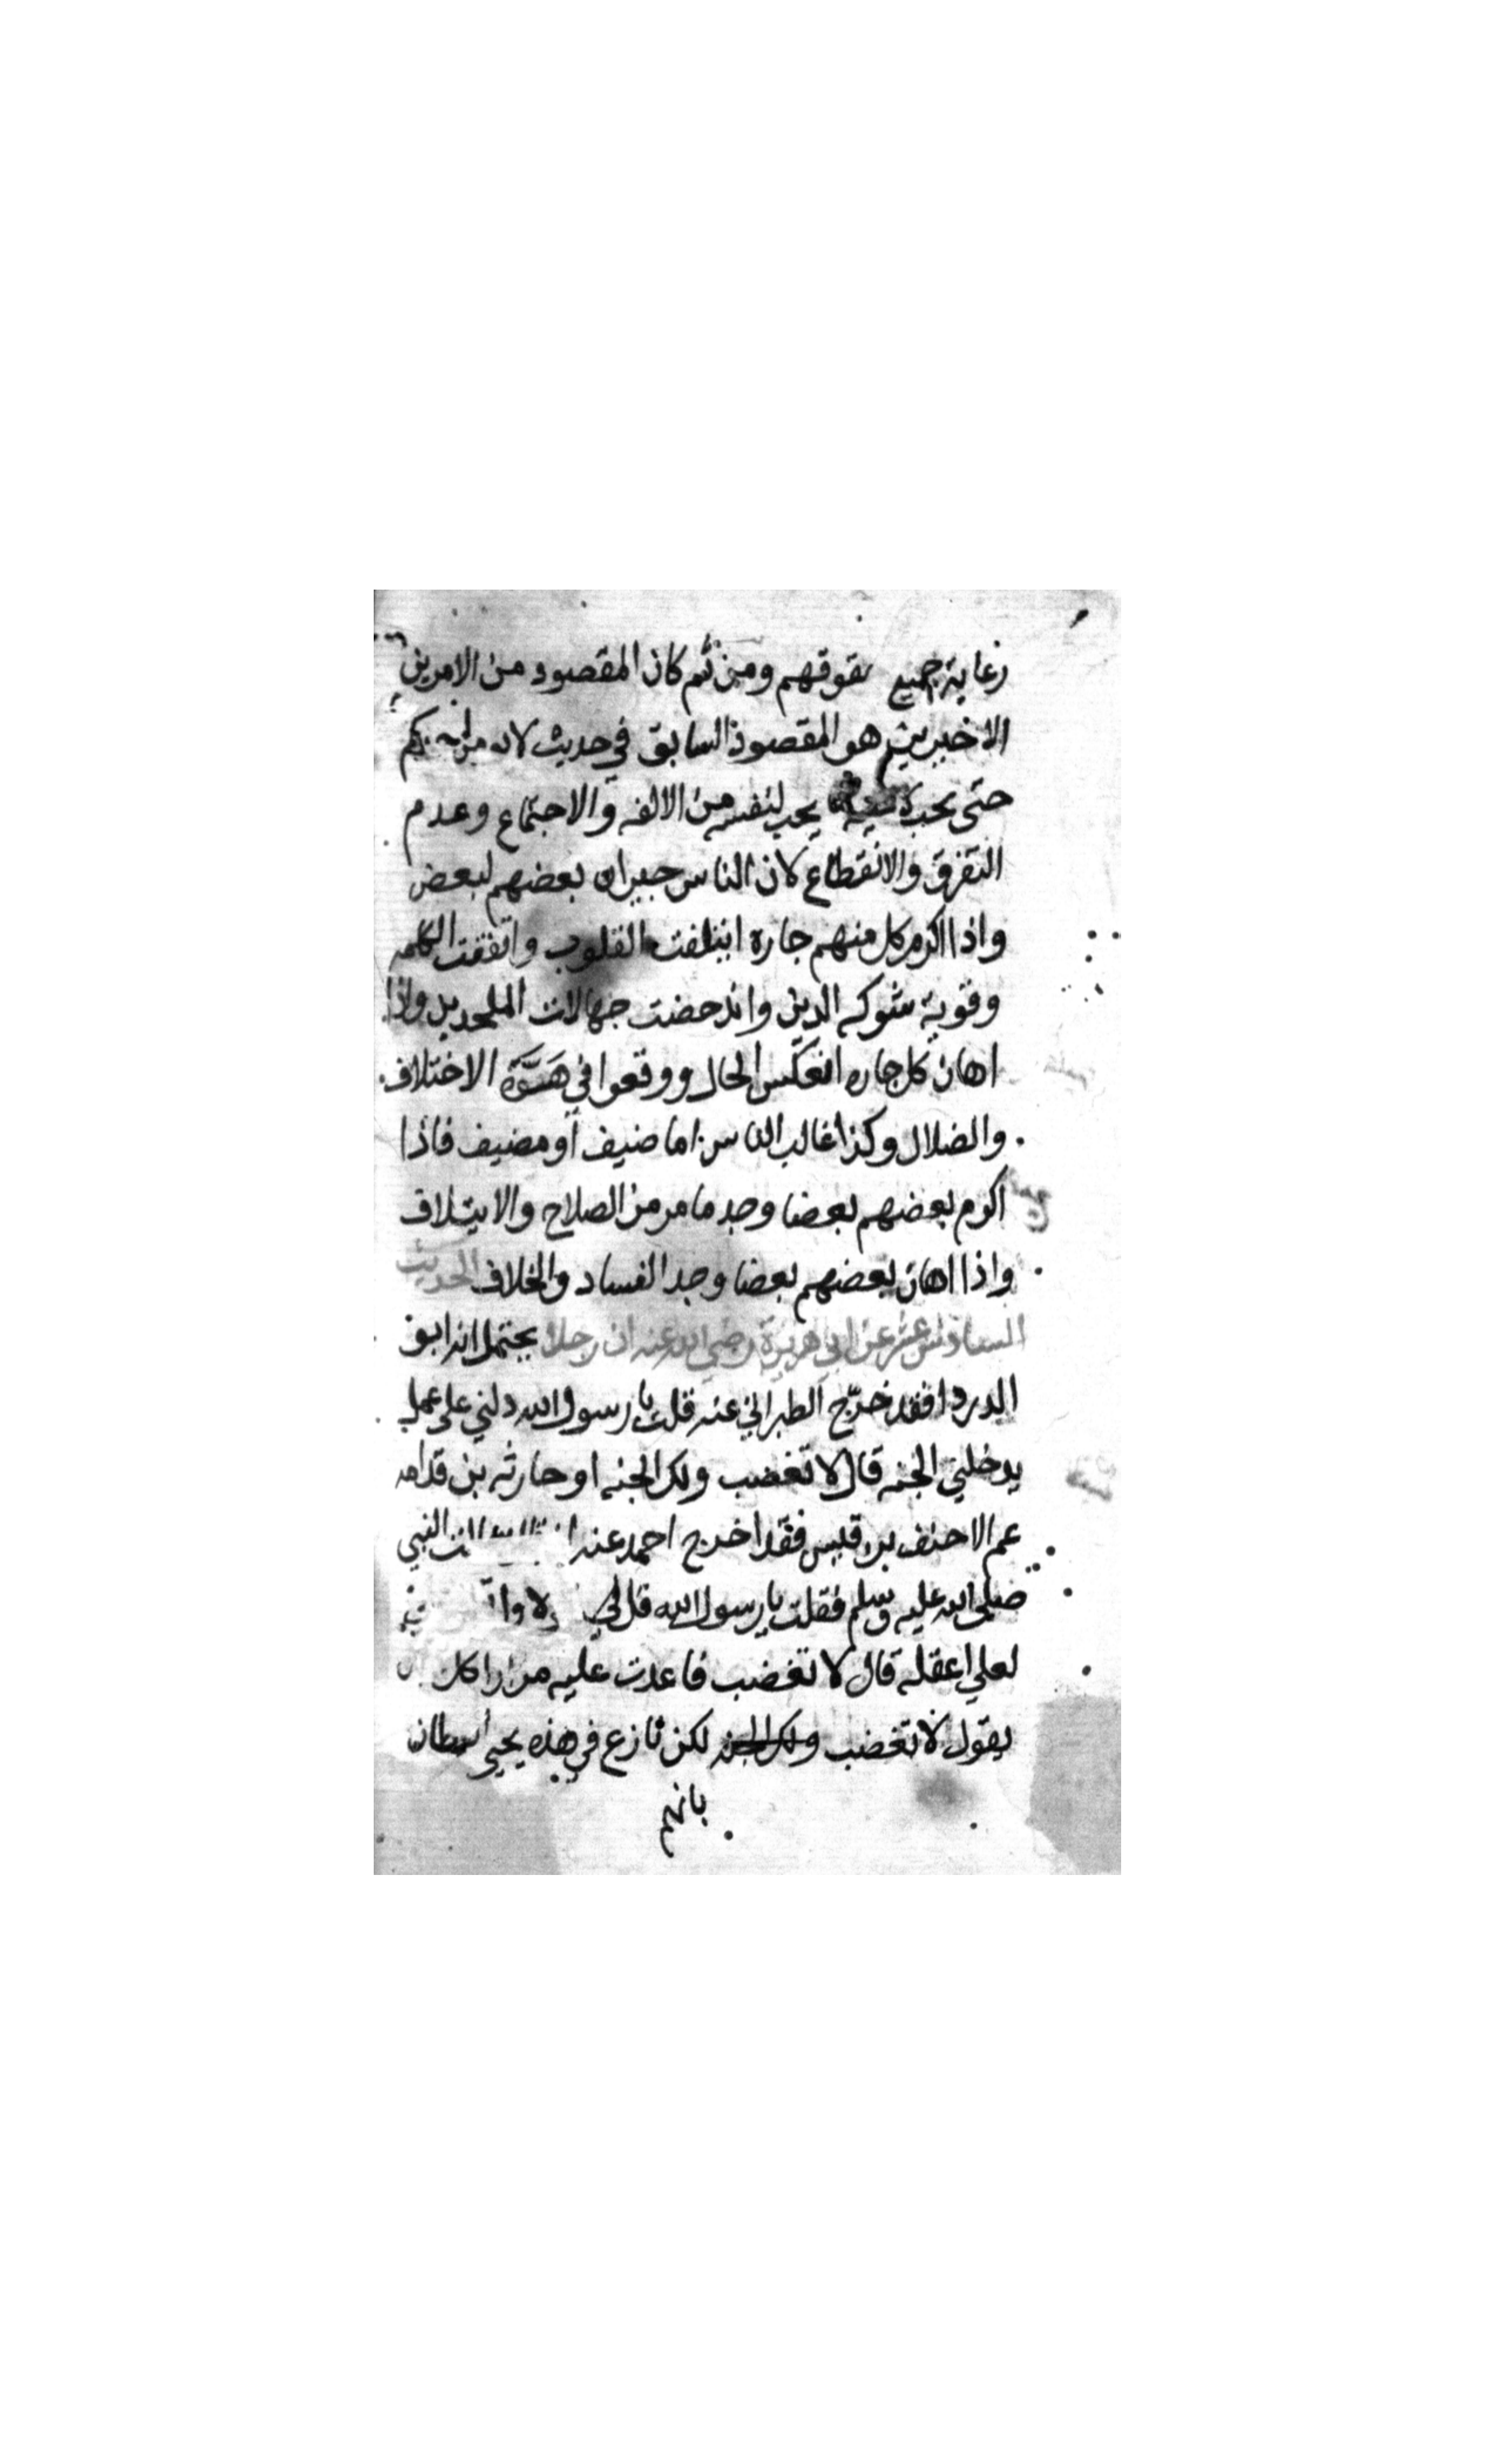 رعاية جميع حقوقهم ومن ثم كان المقصود من الامرين
الاخيرين هو المقصود السابق في حديث لا يومن احدكم
حتى يحب لاخيه ما يحب لنفسه من الالفه والاجتماع وعدم
التفرق والانقطاع لان الناس جيران بعضهم لبعض
واذا اكرم كل منهم جاره ايتلفت القلوب واتفقت الكلمه
وقوية شوكه الدين واندحضت جهالات الملحدين واذا
اهان كل جاره انعكس الحال ووقعوا في هَوَّة الاختلاف
والضلال وكذا غالب الناس اما ضيف او مضيف فاذا
اكرم بعضهم بعضا وجد ما مر من الصلاح والايتلاف
واذا اهان بعضهم بعضا وجد الفساد والخلاف الحديث
السادس عشر عن ابي هريرة رضي الله عنه ان رجلا يحتمل انه ابو
الدردا فقد خرّج الطبراني عنه قلت يا رسول الله دلني على عمل
يدخلني الجنه قال لا تغضب ولك الجنه او حارثه بن قدامه
عم الاحنف بن قيس فقد اخرج احمد عنه النبي
صلى الله عليه وسلم فقلت يا رسول الله قل لي
لعلي اعقله قال لا تغضب فاعدت عليه مرارا كل
يقول لا تغضب ولك الجنه لكن نازع في هذه يحيى القطان
بانهم